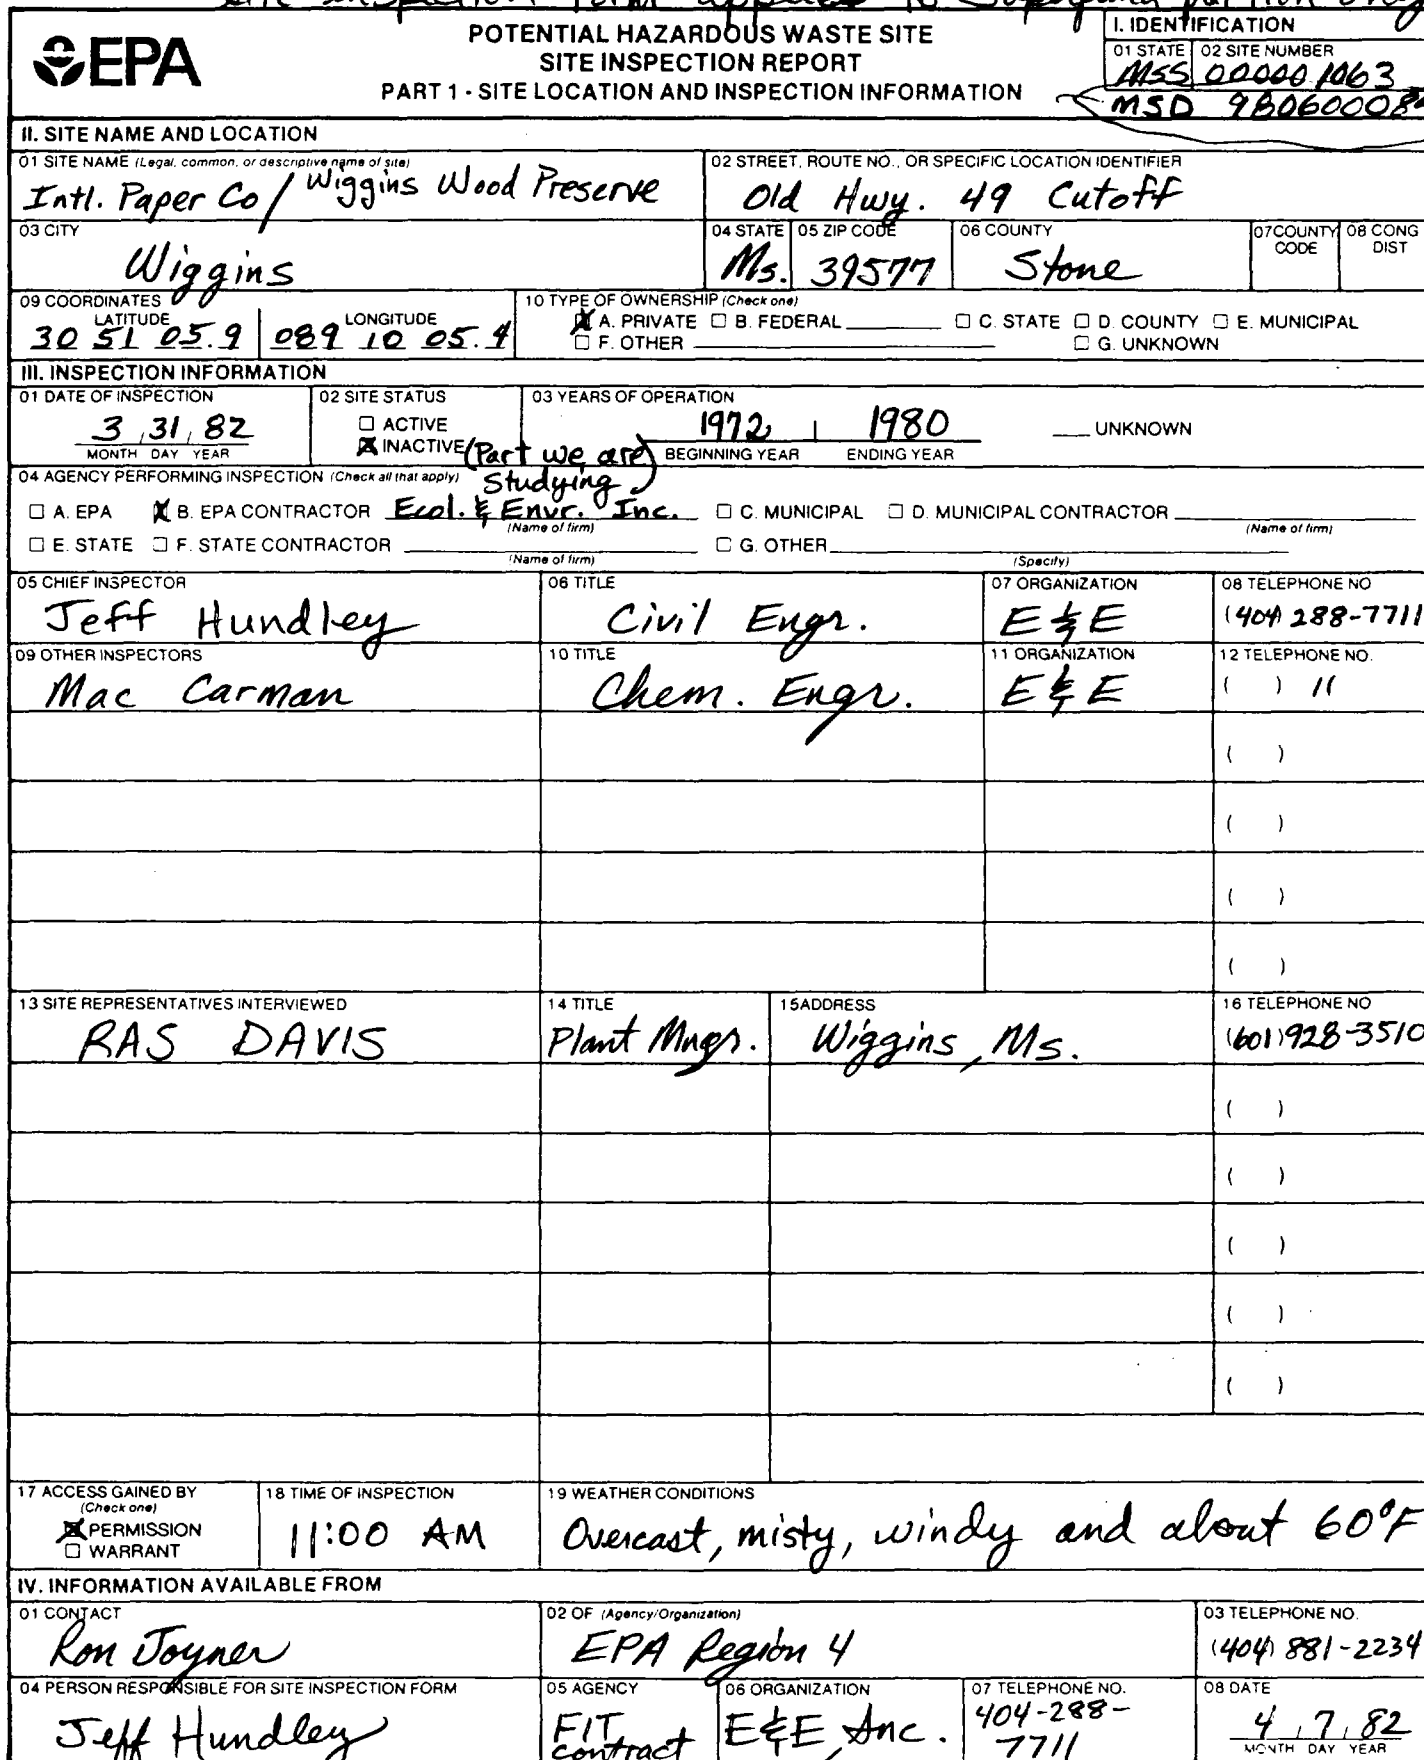 site inspection form applies to
EPA
POTENTIAL HAZARDOUS WASTE SITE
SITE INSPECTION REPORT
PART 1 - SITE LOCATION AND INSPECTION INFORMATION
I. IDENTIFICATION
01 STATE 02 SITE NUMBER
MSS 000001063
MSD 98060008
II. SITE NAME AND LOCATION
01 SITE NAME (Legal, common, or descriptive name of site)
Intl. Paper Co / Wiggins Wood Preserve
02 STREET, ROUTE NO., OR SPECIFIC LOCATION IDENTIFIER
Old Hwy. 49 Cutoff
03 CITY
Wiggins
04 STATE
Ms.
05 ZIP CODE
39577
06 COUNTY
Stone
07 COUNTY CODE
08 CONG DIST
09 COORDINATES
LATITUDE LONGITUDE
30 51 05.9 089 10 05.4
10 TYPE OF OWNERSHIP (Check one)
☒ A. PRIVATE ☐ B. FEDERAL ☐ C. STATE ☐ D. COUNTY ☐ E. MUNICIPAL
☐ F. OTHER ☐ G. UNKNOWN
III. INSPECTION INFORMATION
01 DATE OF INSPECTION
3 31 82
MONTH DAY YEAR
02 SITE STATUS
☐ ACTIVE
☒ INACTIVE (Part we are
Studying)
03 YEARS OF OPERATION
1972 | 1980 UNKNOWN
BEGINNING YEAR ENDING YEAR
04 AGENCY PERFORMING INSPECTION (Check all that apply)
☐ A. EPA ☒ B. EPA CONTRACTOR Ecol. & Envr. Inc. ☐ C. MUNICIPAL ☐ D. MUNICIPAL CONTRACTOR
(Name of firm) (Name of firm)
☐ E. STATE ☐ F. STATE CONTRACTOR ☐ G. OTHER
(Name of firm) (Specify)
05 CHIEF INSPECTOR 06 TITLE 07 ORGANIZATION 08 TELEPHONE NO
Jeff Hundley Civil Engr. E & E (404) 288-7711
09 OTHER INSPECTORS 10 TITLE 11 ORGANIZATION 12 TELEPHONE NO.
Mac Carman Chem. Engr. E & E ( ) "
( )
( )
( )
( )
13 SITE REPRESENTATIVES INTERVIEWED 14 TITLE 15 ADDRESS 16 TELEPHONE NO
RAS DAVIS Plant Mngr. Wiggins, Ms. (601) 928-3510
( )
( )
( )
( )
( )
17 ACCESS GAINED BY
(Check one)
☒ PERMISSION
☐ WARRANT
18 TIME OF INSPECTION
11:00 AM
19 WEATHER CONDITIONS
Overcast, misty, windy and about 60°F
IV. INFORMATION AVAILABLE FROM
01 CONTACT 02 OF (Agency/Organization) 03 TELEPHONE NO.
Ron Joyner EPA Region 4 (404) 881-2234
04 PERSON RESPONSIBLE FOR SITE INSPECTION FORM
Jeff Hundley
05 AGENCY
FIT
contract
06 ORGANIZATION
E&E, Inc.
07 TELEPHONE NO.
404-288-
7711
08 DATE
4 7 82
MONTH DAY YEAR